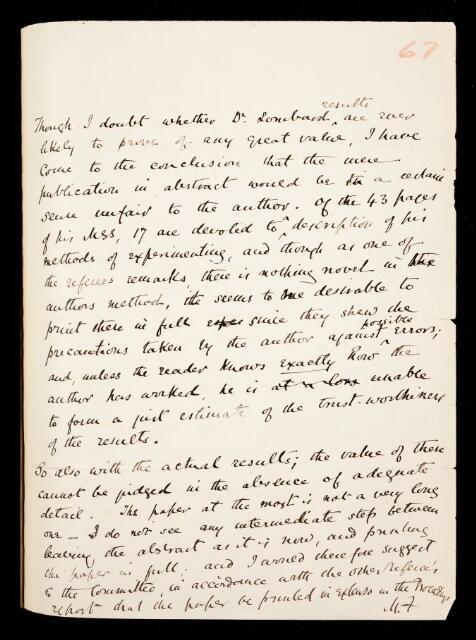 67
results
Though I doubt whether Dr. Lombard, are ever
likely to prove of any great value, I have
come to the conclusion that the mere
publication in abstract would be in a certain
sense unfair to the author. Of the 43 pages
of his MSS, 17 are devoted to description of his
methods of experimenting, and though as one of
the referees remarks, there is nothing novel in the
authors method, it seems to me desirable to
print these in full since they shew the
possible
precautions taken by the author against errors;
and, unless the reader knows exactly how the
author has worked, he is at a loss unable
to form a just estimate of the trust-worthiness
of the results.
So also with the actual results; the value of these
cannot be judged in the absence of adequate
detail. The paper at the most is not a very long
one - I do not see any intermediate step between
leaving the abstract as it is now, and printing
the paper in full; and I would therefore suggest
to the Committee, in accordance with the other referee,
report that the paper be printed in extenso in the Proceedings
M.F